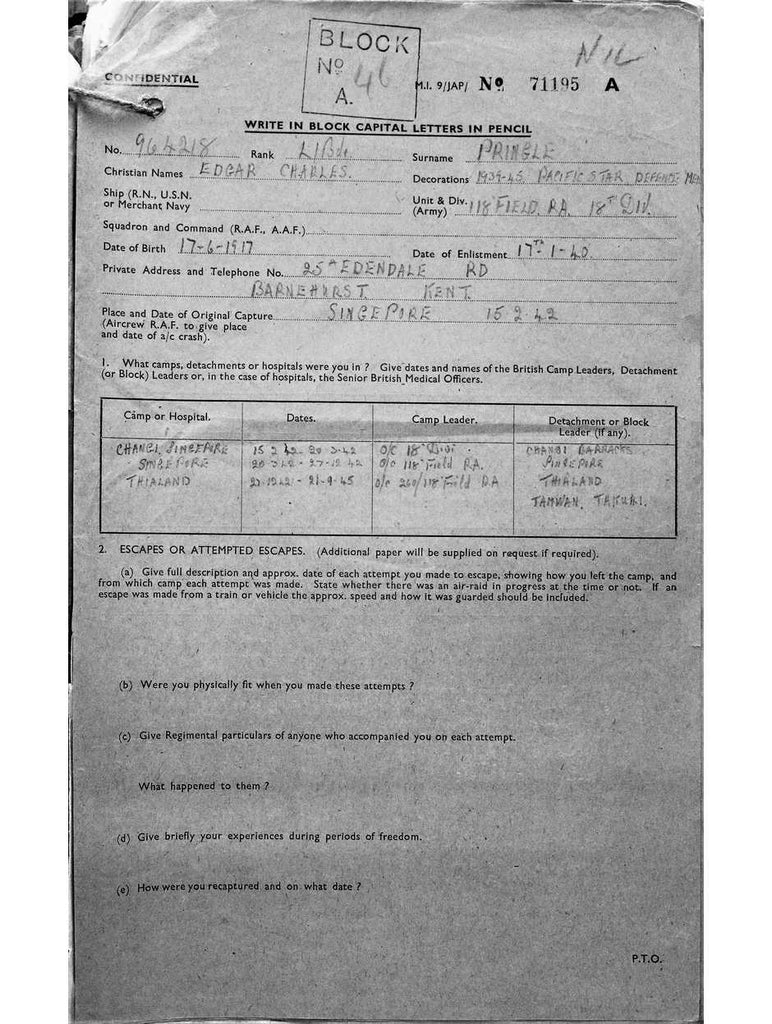 BLOCK
No 46
A.
Nil
CONFIDENTIAL
M.I. 9/JAP/ No. 71195 A
WRITE IN BLOCK CAPITAL LETTERS IN PENCIL
No. 964218 Rank L/Bdr. Surname PRINGLE
Christian Names EDGAR CHARLES. Decorations 1939-45. PACIFIC STAR DEFENCE MED
Ship (R.N., U.S.N. or Merchant Navy Unit & Div. (Army) 118 FIELD. RA. 18TH DIV.
Squadron and Command (R.A.F., A.A.F.)
Date of Birth 17-6-1917 Date of Enlistment 17TH-1-40.
Private Address and Telephone No. 25 EDENDALE RD
BARNEHURST KENT.
Place and Date of Original Capture SINGEPORE 15.2.42
(Aircrew R.A.F. to give place
and date of a/c crash).
1. What camps, detachments or hospitals were you in ? Give dates and names of the British Camp Leaders, Detachment
(or Block) Leaders or, in the case of hospitals, the Senior British Medical Officers.
Camp or Hospital. Dates. Camp Leader. Detachment or Block Leader (if any).
CHANGI, SINGEPORE 15 2 42 - 20 3-42 O/C 18 Divi CHANGI BARRACKS
SINGEPORE 20 3 42 - 27-12 42 O/c 118 Field RA.
THIALAND 27-12 42 - 21-9-45 O/c 260/118 Field RA THIALAND
TAMWAN,
2. ESCAPES OR ATTEMPTED ESCAPES. (Additional paper will be supplied on request if required).
(a) Give full description and approx. date of each attempt you made to escape, showing how you left the camp, and
from which camp each attempt was made. State whether there was an air-raid in progress at the time or not. If an
escape was made from a train or vehicle the approx. speed and how it was guarded should be included.
(b) Were you physically fit when you made these attempts ?
(c) Give Regimental particulars of anyone who accompanied you on each attempt.
What happened to them ?
(d) Give briefly your experiences during periods of freedom.
(e) How were you recaptured and on what date ?
P.T.O.